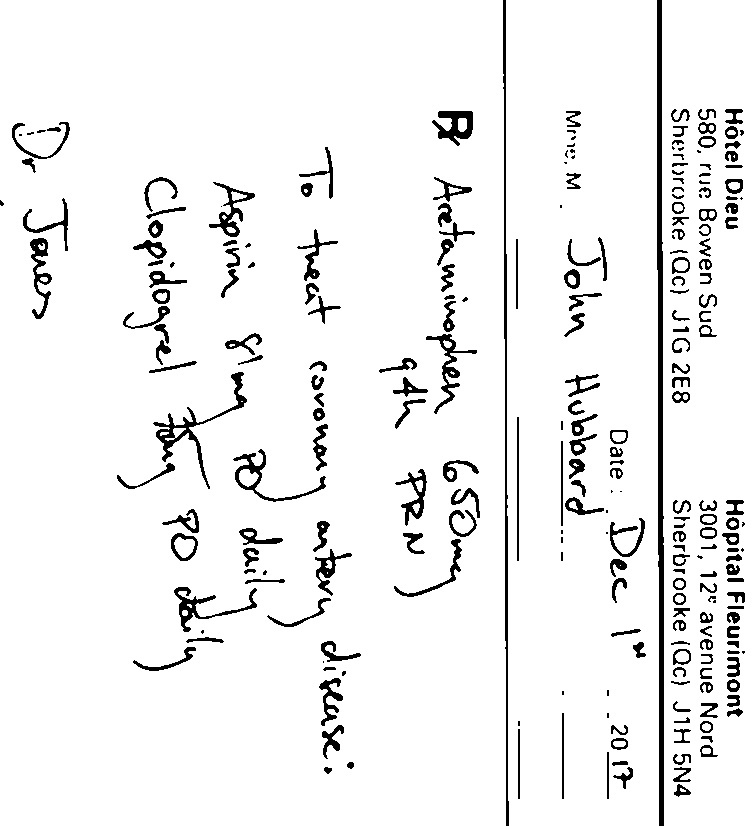 Hôtel Dieu
580, rue Bowen Sud
Sherbrooke (Qc) J1G 2E8
Hôpital Fleurimont
3001, 12e avenue Nord
Sherbrooke (Qc) J1H 5N4
Date : Dec 1st 2017
Mme, M. John Hubbard
Rx Acetaminophen 650mg
q4h PRN
To treat coronary artery disease:
Aspirin 81mg PO daily
Clopidogrel 75mg PO daily
Dr Jones